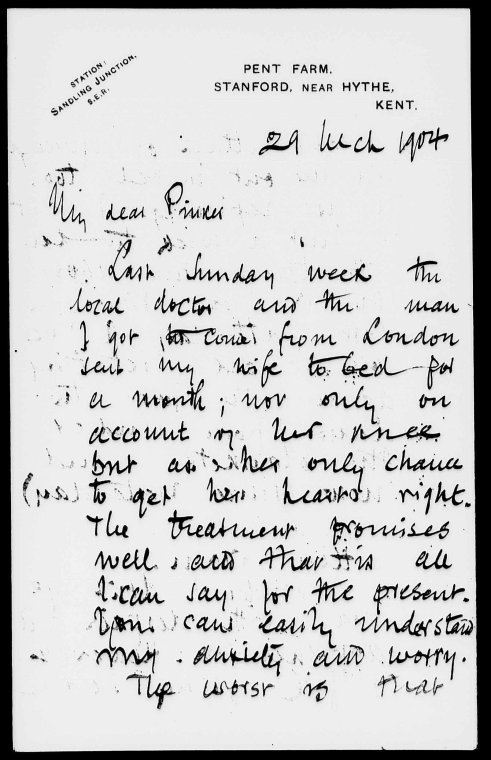 STATION:
SANDLING JUNCTION.
S.E.R.
PENT FARM,
STANFORD, NEAR HYTHE,
KENT.
29 Mch 1904
My dear Pinker
Last Sunday week the
local doctor and the man
I got to come from London
sent my wife to bed for
a month; not only on
account of her knee
but as her only chance
to get her heart right.
The treatment promises
well and that is all
I can say for the present.
You can easily understand
my anxiety and worry.
The worst is that